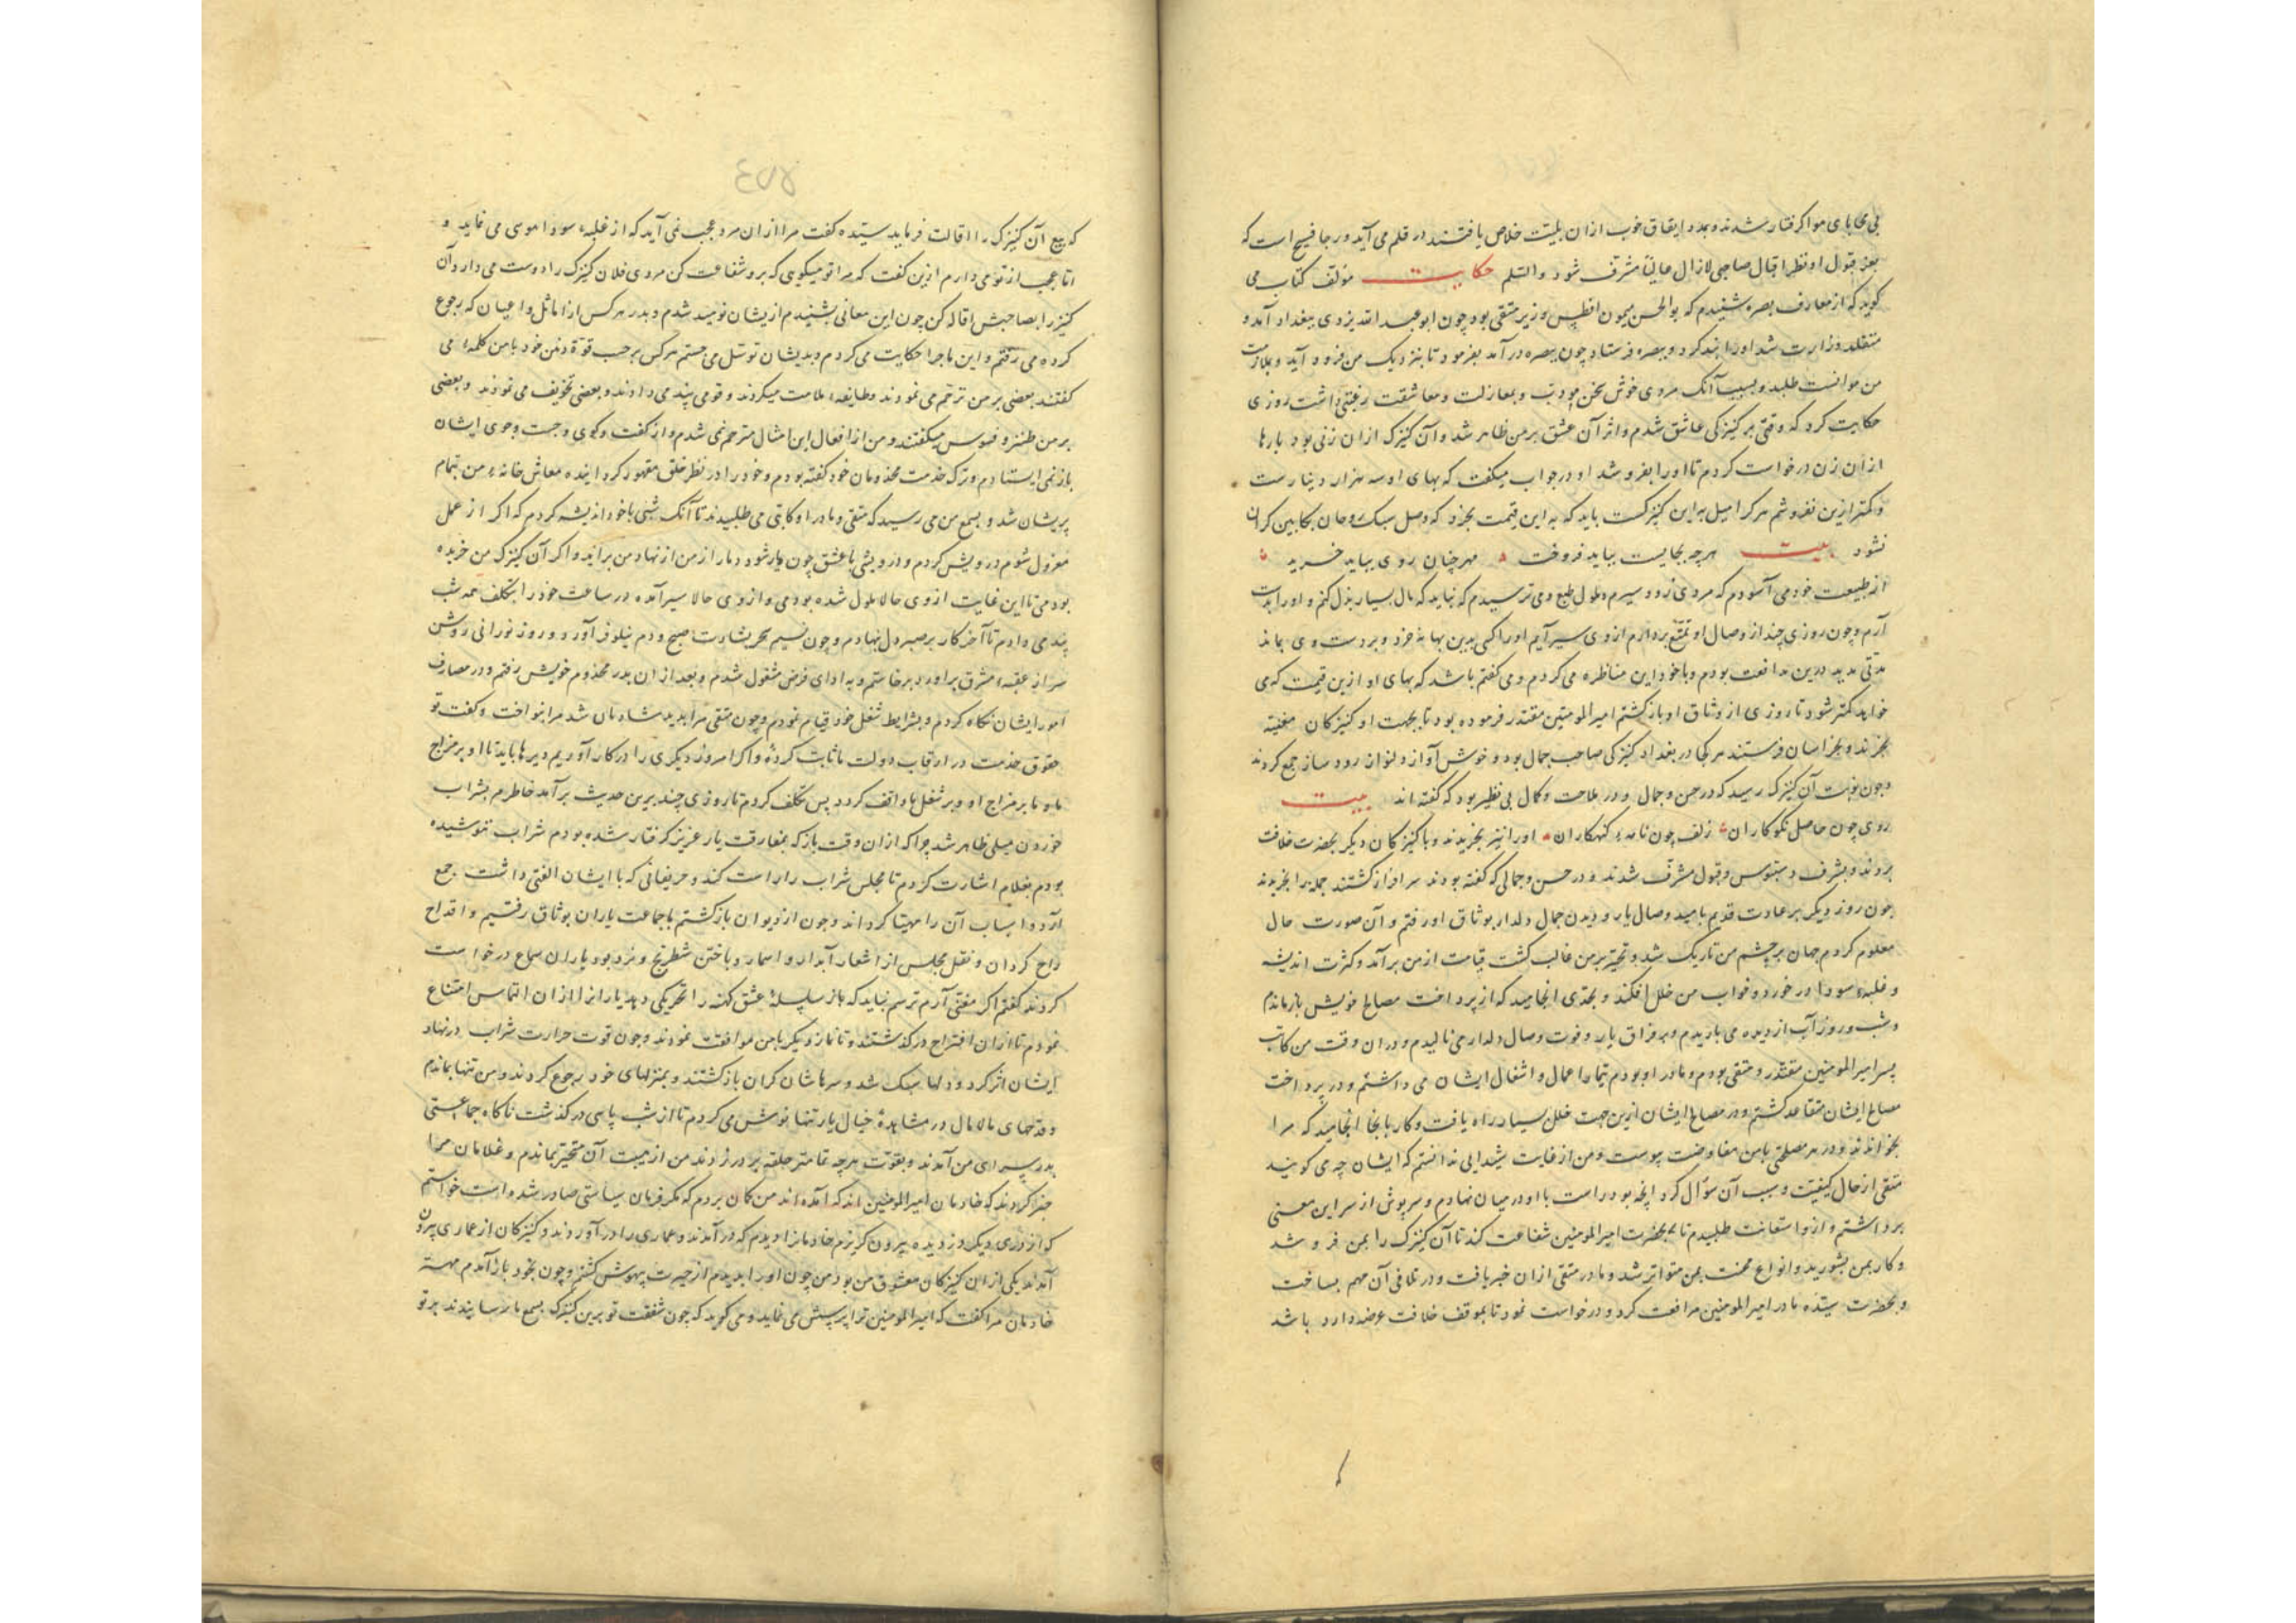 بی محابای هوا گرفتار شدند و بمدد ایفاق خوب ازان بلیّت خلاص یافتند در قلم می آید و رجا فسیح است که
بعز قبول او نظر اقبال صاحبی لازال عالیاً مشرف شود والسلم حکایت مؤلف کتاب می
کوید که از معارف بصره شنیدم که بوالحسن میمون افطس وزیر متقی بود چون ابو عبد الله یزدی ببغداد آمد و
متقلد وزارت شد اورا بند کرد و ببصره فرستاد چون ببصره در آمد بفرمود تا بنزدیک من فرود آید و بملازمت
من موانست طلبد و بسبب آنک مردی خوش سخن مودب و بمغازلت و معاشقت رغبتی داشت روزی
حکایت کرد که وقتی بر کنیزکی عاشق شدم و اثر آن عشق بر من ظاهر شد و آن کنیزک ازان زنی بود بارها
ازان زن درخواست کردم تا اورا بفروشد او در جواب میکفت که بهای او سه هزار دینارست
و کمتر ازین نفروشم هر کرا میل به این کنیزکست باید که به این قیمت بخرد که وصل سبک روحان بکابین کران
نشود بیت هرچه بجایست بباید فروخت مهر چنان روی بباید خرید
از طبیعت خود می آسودم که مردی زود سیرم و ملول طبع و می ترسیدم که نباید که مال بسیار بذل کنم و اورا بدست
آرم و چون روزی چند از وصال او تمتع بردارم ازوی سیر آیم اورا کسی بدین بها نخرد و بر دست وی بماند
مدتی مدید درین مدافعت بودم و با خود این مناظره می کردم و می کفتم باشد که بهای او ازین قیمت که می
خواهد کمتر شود تا روزی از وثاق او باز کشتم امیر المومنین مقتدر فرموده بود تا بجهت او کنیزکان مغنیه
بخرند و بخراسان فرستند هر کجا در بغداد کنیزکی صاحب جمال بود و خوش آواز و دلنواز رود ساز جمع کردند
و چون نوبت آن کنیزک رسید که در حسن و جمال و در ملاحت و کمال بی نظیر بود که کفته اند بیت
روی چون حاصل نکوکاران زلف چون نامه کنهکاران اورا نیز بخریدند و با کنیزکان دیکر بحضرت خلافت
بردند و بشرف دستبوس و قبول مشرف شدند و در حسن و جمالی که کفته بودند سرافراز کشتند جمله را بخریدند
چون روز دیکر بر عادت قدیم بامید وصال یار و دیدن جمال دلدار بوثاق او رفتم و آن صورت حال
معلوم کردم جهان بر چشم من تاریک شد و تحیر بر من غالب کشت قیامت از من برآمد و کثرت اندیشه
و غلبه سودا در خورد و خواب من خلل افکند و بحدی انجامید که از پرداخت مصالح خویش باز ماندم
و شب و روز آب از دیده می باریدم و بر فراق یار و فوت وصال دلدار می نالیدم و دران وقت من کاتب
پسر امیر المومنین مقتدر و متقی بودم و مادر او بودم تیمار اعمال و اشغال ایشان می داشتم و در پرداخت
مصالح ایشان متقاعد کشتم و در مصالح ایشان ازین جهت خلل بسیار راه یافت و کار بآنجا انجامید که مرا
بخواندند و در هر مصلحتی بامن مفاوضت پیوست و من از غایت شیدایی ندانستم که ایشان چه می کویند
متقی از حال کیفیت و سبب آن سؤال کرد آنچه بود راست با او در میان نهادم و سرپوش از سر این معنی
برداشتم و ازو استعانت طلبیدم تا بحضرت امیر المومنین شفاعت کند تا آن کنیزک را بمن فروشد
و کار بمن بشورید و انواع محنت بمن متواتر شد و مادر متقی ازان خبر یافت و در تلافی آن مهم بساخت
و بحضرت سیّده مادر امیر المومنین مرافعت کرد و درخواست نمود تا بموقف خلافت عرضه دارد باشد
که بیع آن کنیزک را اقالت فرماید سیّده کفت مرا ازان مرد عجب نمی آید که از غلبه سودا هوسی می نماید و
اما عجب از تو می دارم ازین کفت که مرا تو میکویی که برو شفاعت کن مردی فلان کنیزک را دوست می دارد آن
کنیز را بصاحبش اقاله کن چون این معانی بشنیدم از یشان نومید شدم و بدر هر کس از اماثل و اعیان که رجوع
کرده می رفتم و این ماجرا حکایت می کردم و بدیشان توسل می جستم هر کس بر حسب قوه ذهن خود با من کلمه می
کفتند بعضی بر من ترحم می نمودند و طایفه ملامت میکردند و قومی پند می دادند و بعضی تخویف می نمودند و بعضی
بر من طنز و فسوس میکفتند و من از افعال این امثال مترحم نمی شدم و از کفت و کوی و جست و جوی ایشان
باز نمی ایستادم و ترک خدمت مخدومان خود کفته بودم و خود را در نظر خلق مقهور کردانیده معاش خانه من تمام
پریشان شد و بسمع من می رسید که متقی و مادر او کاتبی می طلبیدند تا آنک شبی با خود اندیشه کردم که اکر از عمل
معزول شوم درویش کردم و درویشی با عشق چون یار شود دمار از من از نهاد من برآید و اکر آن کنیزک من خریده
بودمی تا این غایت ازوی حالا ملول شده بودمی و ازوی حالا سیر آمده در ساعت خود را بتکلف همه شب
پند می دادم تا آخر کار بر صبر دل نهادم و چون نسیم سحر بشارت صبح و دم نیلوفر آورد و روز نورانی روشن
سر از عقبه مشرق برآورد برخاستم و به ادای فرض مشغول شدم و بعد ازان بدر مخدوم خویش رفتم و در مصارف
امور ایشان نکاه کردم و بشرایط شغل خود قیام نمودم و چون متقی مرا بدید شادمان شد مرا بنواخت و کفت تو
حقوق خدمت در ارقاب دولت ما ثابت کرده و اکر امروز دیکری را در کار آوریم دیرها باید تا او بر مزاج
ما و ما بر مزاج او و بر شغل ما واقف کردد پس تکلف کردم تا روزی چند برین حدیث برآمد خاطرم بشراب
خوردن میلی ظاهر شد چرا که ازان وقت باز که بمفارقت یار عزیز کرفتار شده بودم شراب ننوشیده
بودم بغلام اشارت کردم تا مجلس شراب را راست کند و حریفانی که با ایشان الفتی داشت جمع
آرد و اسباب آن را مهیا کرداند و چون از دیوان باز کشتم با جماعت یاران بوثاق رفتیم و اقداح
راح کردان و نقل مجلس از اشعار آبدار و اسمار و باختن شطرنج و نرد بود یاران سماع درخواست
کردند کفتم اکر مغنی آرم ترسم نباید که باز سلسله عشق کهنه را تحریکی دهد یارانرا ازان التماس امتناع
نمودم تا ازان اقتراح در کذشتند و تا نماز دیکر با من موافقت نمودند و چون قوت حرارت شراب در نهاد
ایشان اثر کرد و دلها سبک شد و سرهاشان کران باز کشتند و بمنزلهای خود رجوع کردند و من تنها بماندم
و قدحهای مالامال در مشاهده خیال یار تنها نوش می کردم تا از شب پاسی در کذشت ناکاه جماعتی
بدر سرای من آمدند و بقوت هرچه تمامتر حلقه بر در زدند من از هیبت آن متحیر بماندم و غلامان مرا
خبر کردند که خادمان امیر المومنین اند که آمده اند من کمان بردم که مکر فرمان سیاستی صادر شده است خواستم
که از دری دیکر دزدیده بیرون کریزم خادمانرا دیدم که در آمدند و عماری را در آوردند و کنیزکان از عماری بیرون
آمدند یکی ازان کنیزکان معشوق من بود من چون اورا بدیدم از حیرت بیهوش کشتم و چون بخود باز آمدم مهتر
خادمان مرا کفت که امیر المومنین ترا پرسش می نماید و می کوید که چون شفقت تو برین کنیزک بسمع ما رسانیدند بر تو